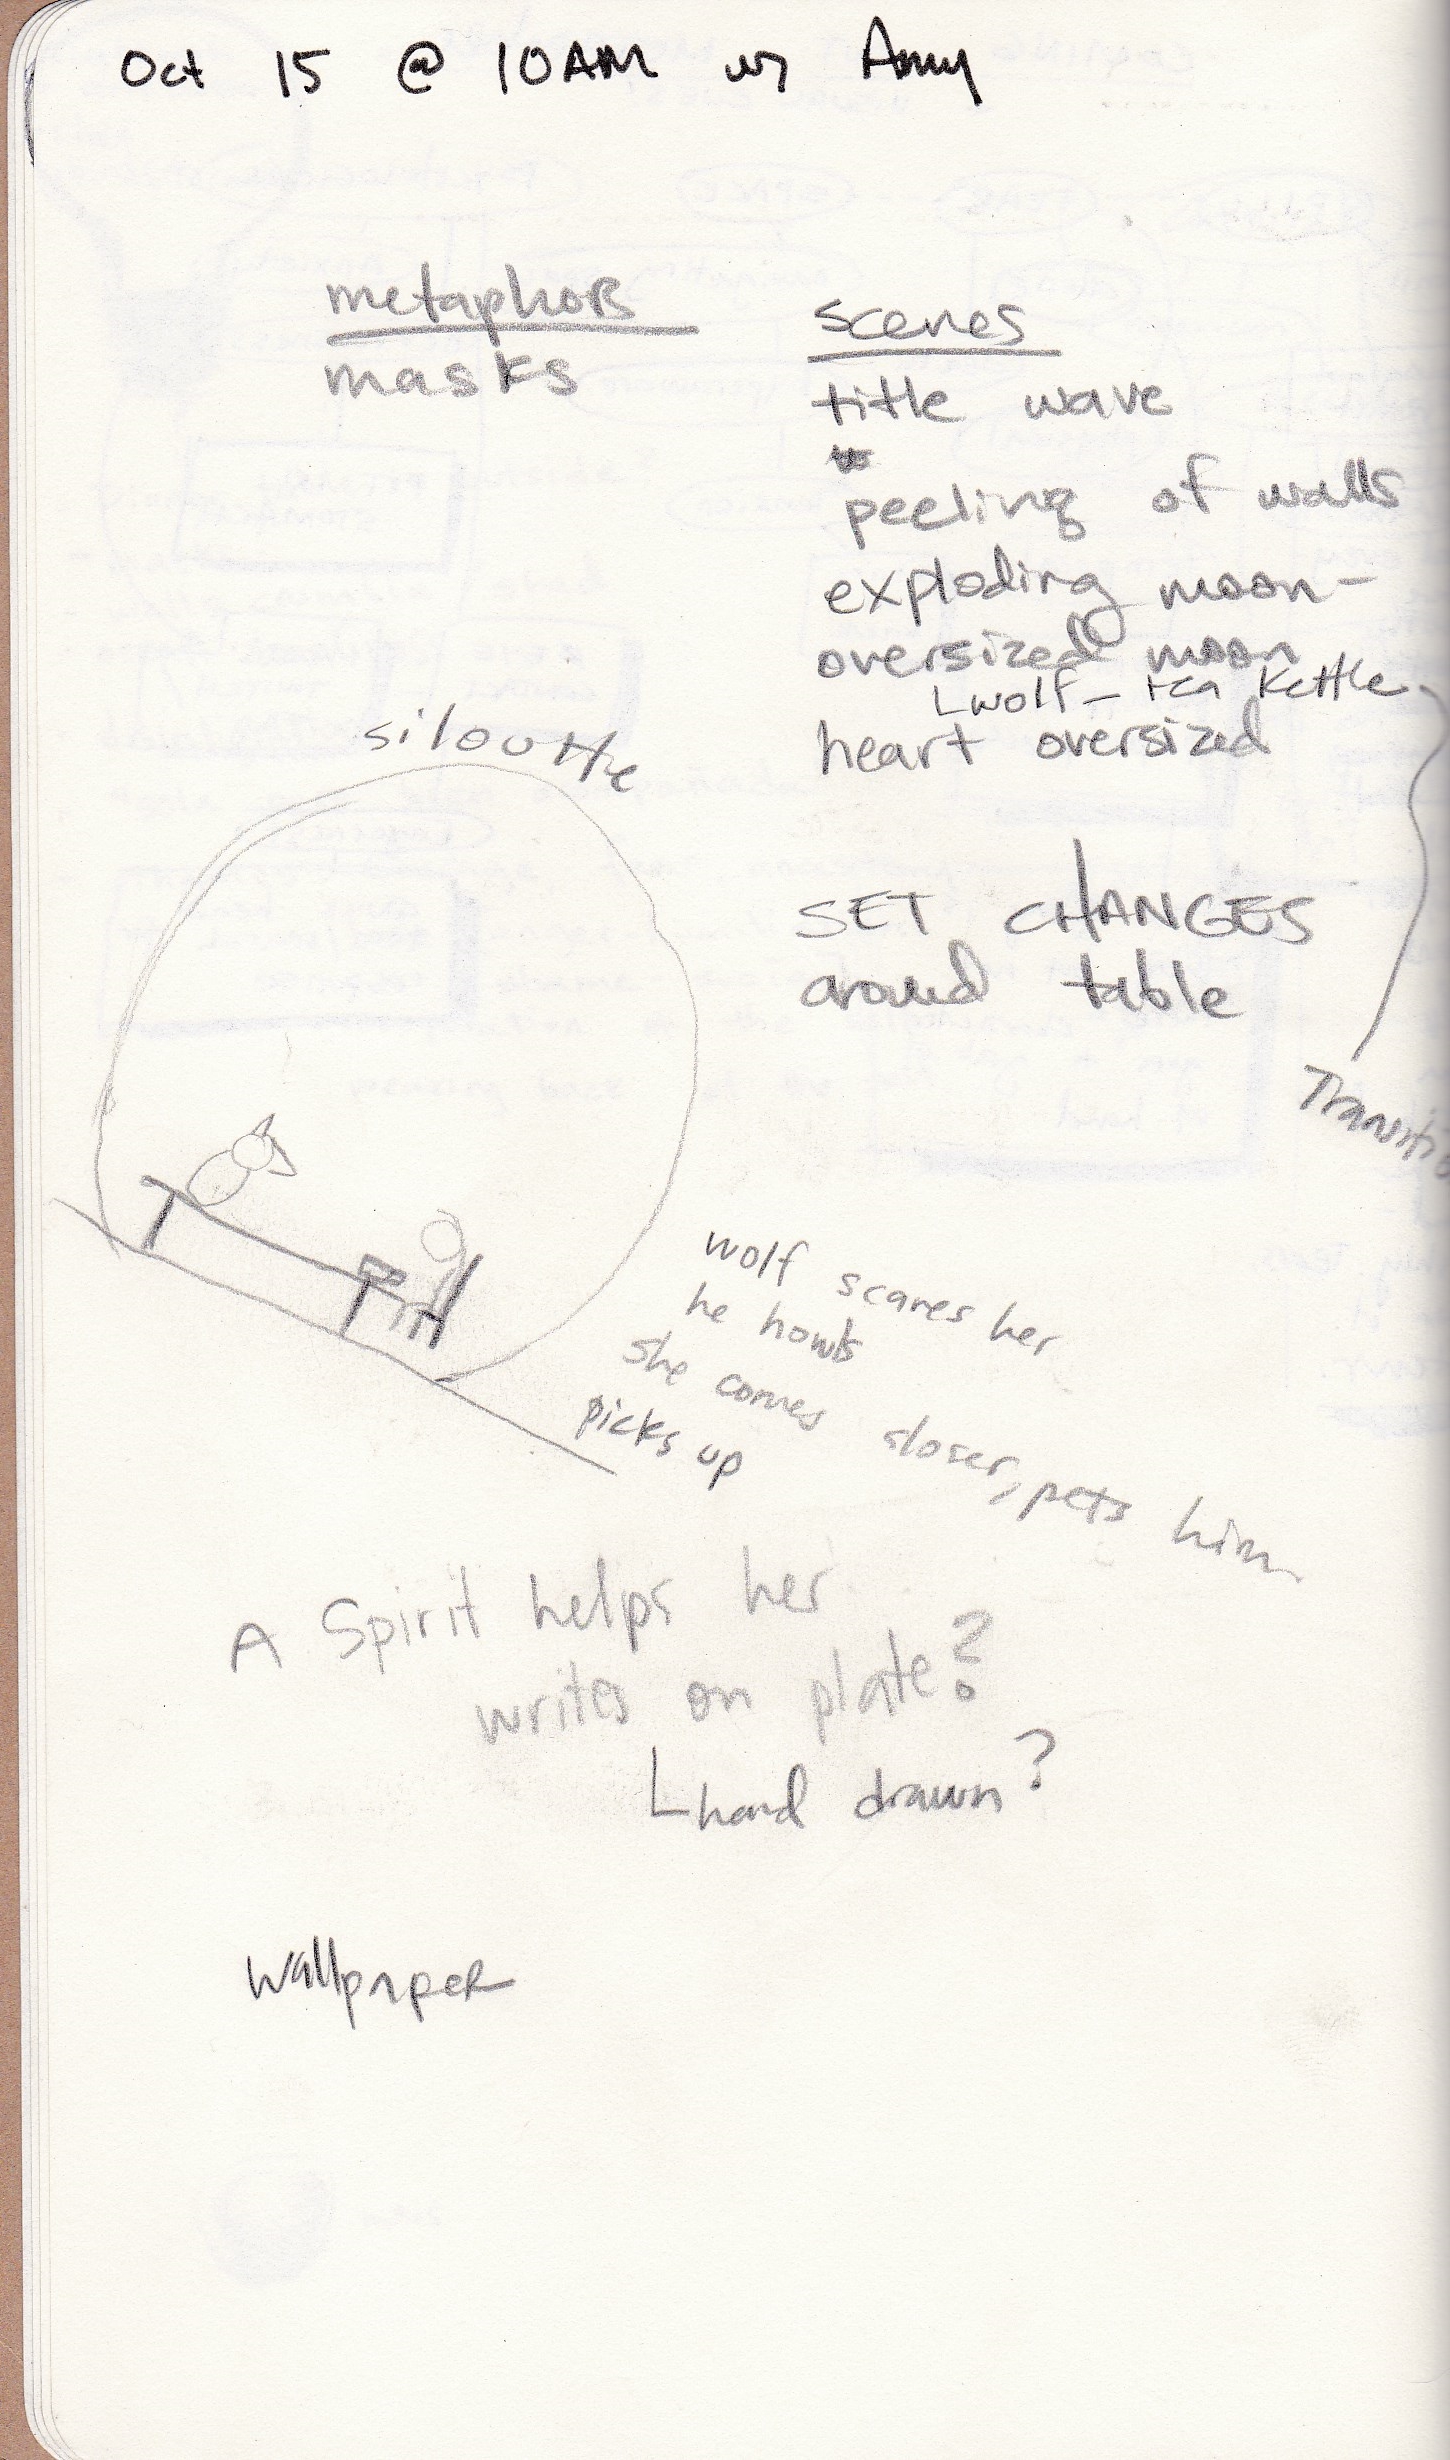 Oct 15 @ 10AM w/ Amy
metaphors
masks
scenes
title wave
peeling of walls
exploding moon -
oversized moon
wolf - tea kettle
heart oversized
SET CHANGES
around table
siloutte
wolf scares her
he howls
she comes closer, pets him
picks up
A Spirit helps her
writes on plate?
hand drawn?
wallpaper